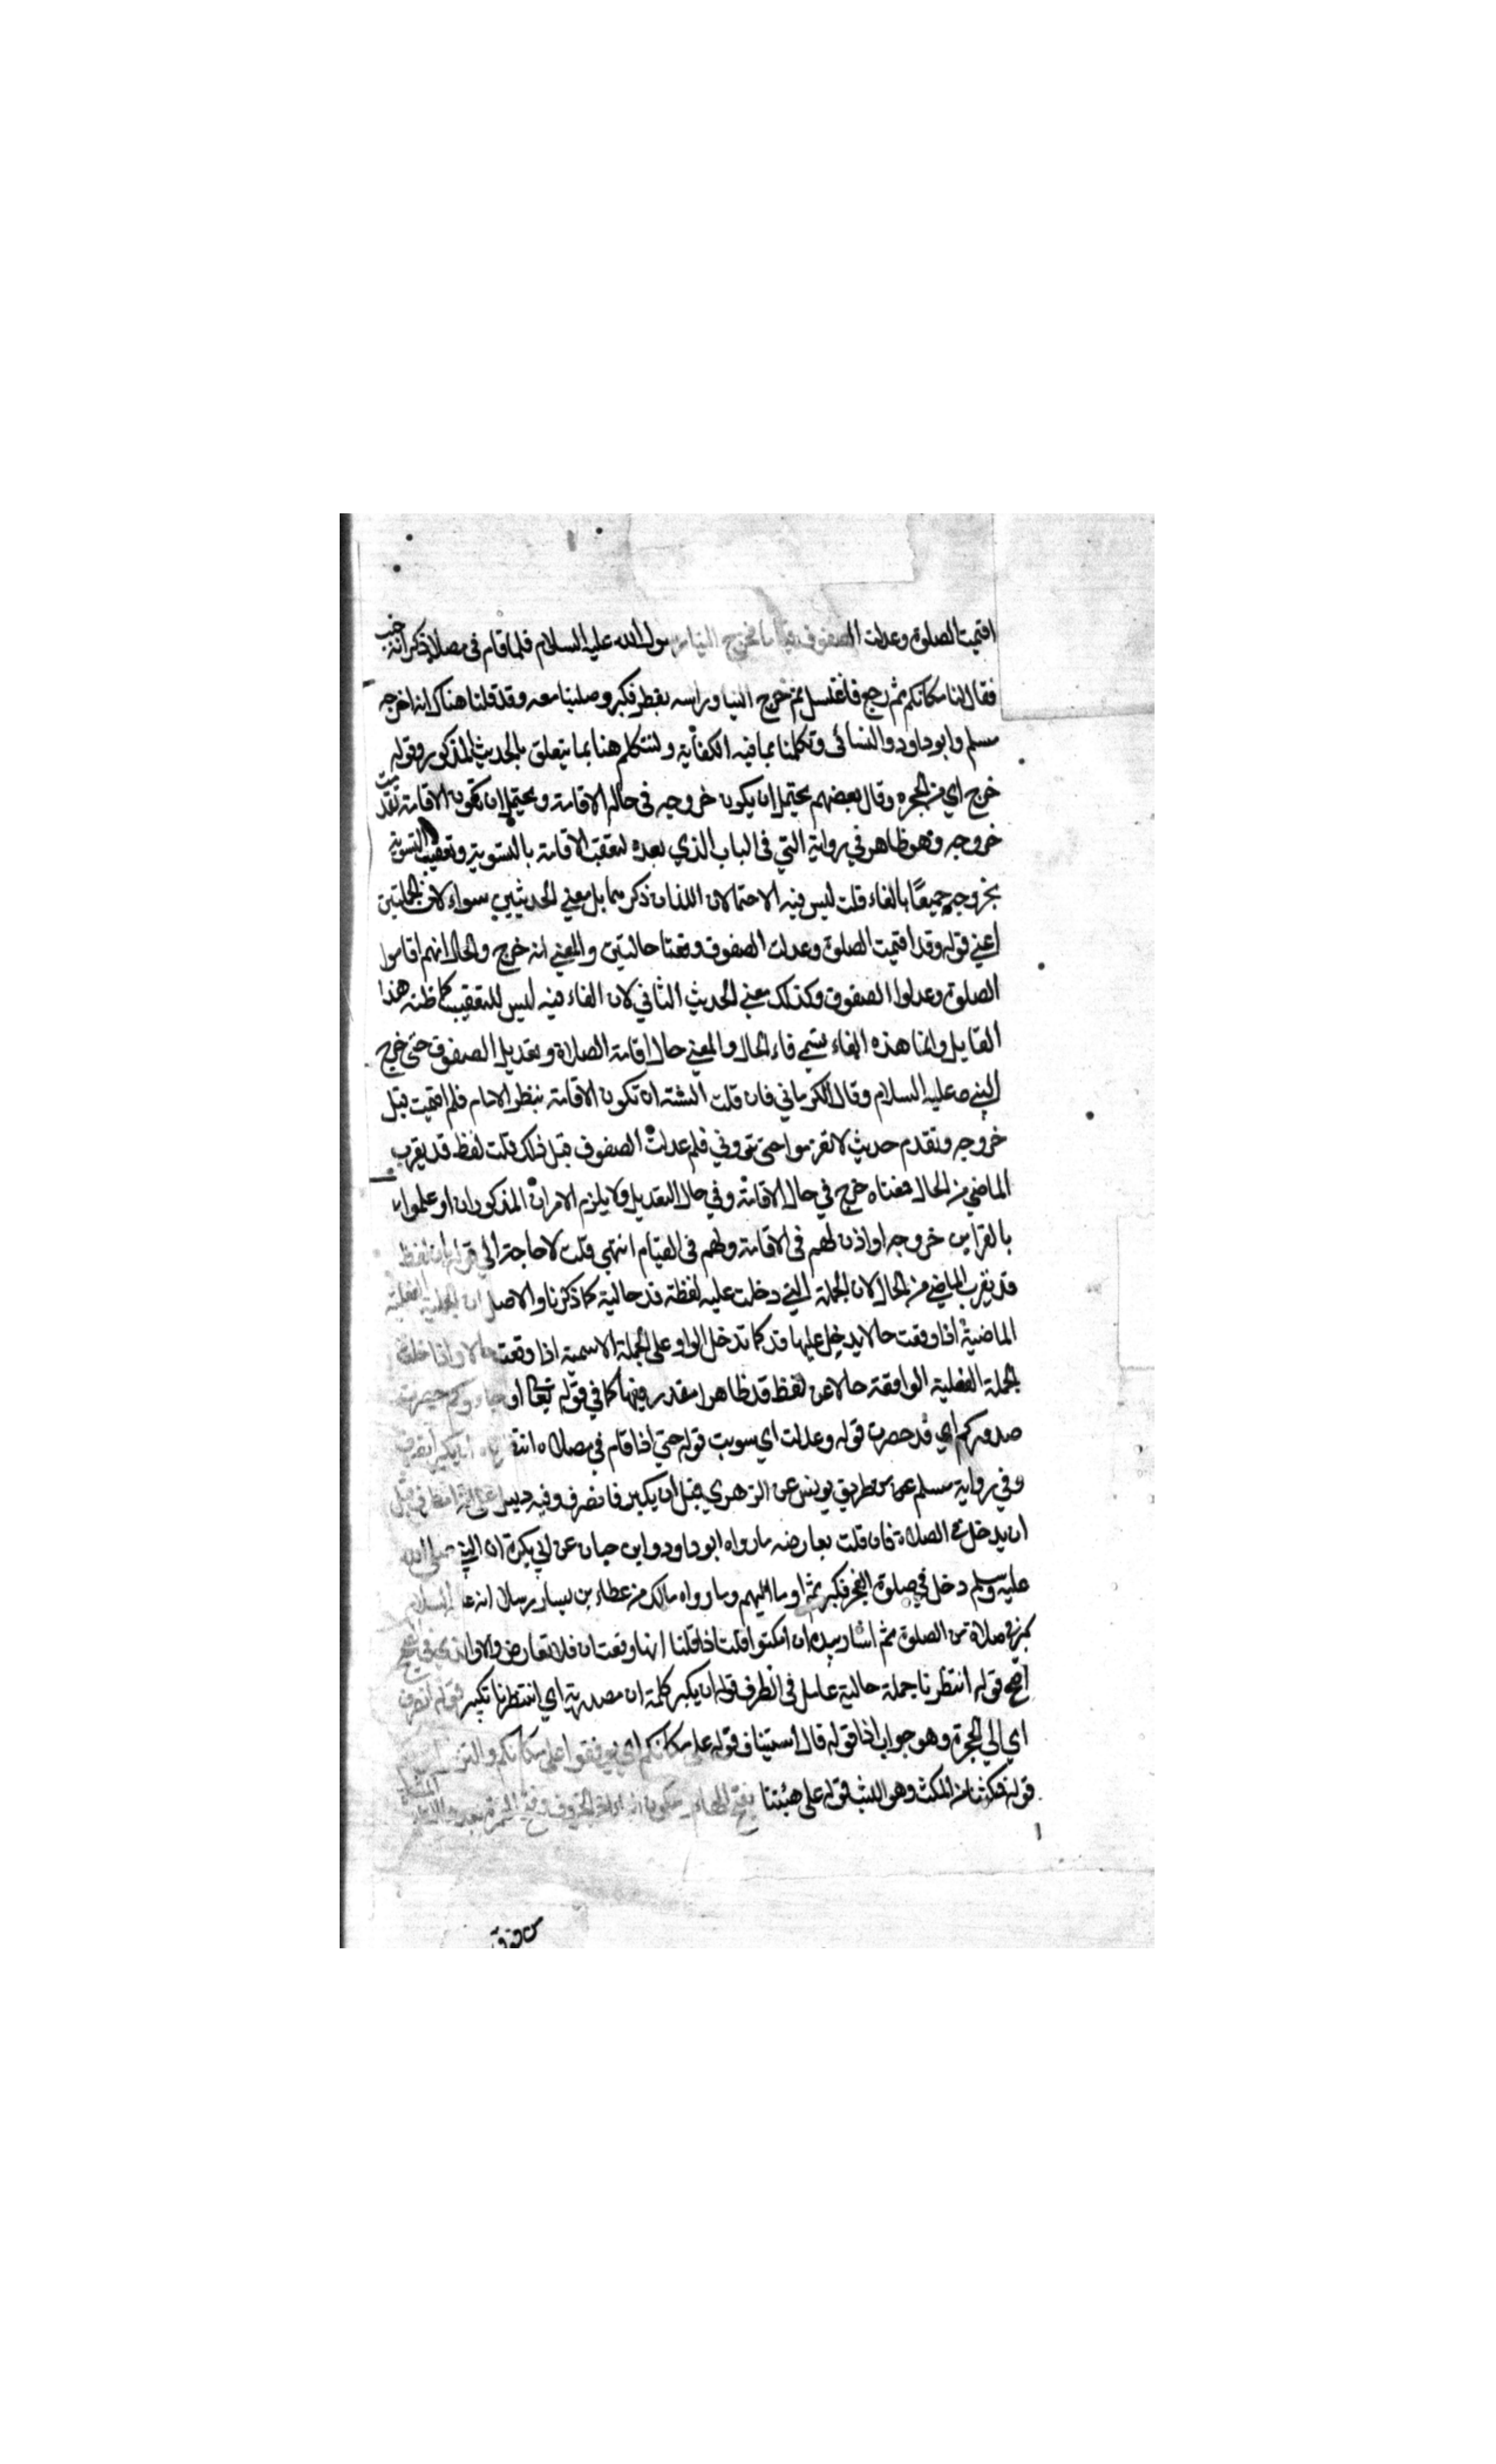 اقيمت الصلوة وعدلت الصفوف قياما فخرج الينا رسول الله عليه السلام فلما قام في مصلاه ذكر انه جنب
فقال لنا مكانكم ثم رجع فاغتسل ثم خرج الينا وراسه يقطر فكبر وصلينا معه وقد قلنا هناك انه اخرجه
مسلم وابو داود والنسائى وتكلمنا بما فيه الكفاية ولنتكلم هنا بما يتعلق بالحديث المذكور وقوله
خرج اي من الحجره وقال بعضهم يحتمل ان يكون خروجه فى حالة الاقامة ويحتمل ان تكون الاقامة تقدمت
خروجه وهو ظاهر في رواية التي فى الباب الذي بعده لتعقب الاقامة بالتسوية وتعقيب التسوية
بخروجه جميعًا بالفاء قلت ليس فيه الاحتمالان اللذان ذكرهما بل معني الحديثين سواء لان الجملتين
اعني قوله وقد اقيمت الصلوة وعدلت الصفوف وقعتا حاليتين والمعني انه خرج والحال انهم اقاموا
الصلوة وعدلوا الصفوف وكذلك معني الحديث الثاني لان الفاء فيه ليس للتعقيب كما ظنه هذا
القايل وانما هذه الفاء يسمي فاء الحال والمعني حال اقامة الصلاة وتعديل الصفوف حتى خرج
النبي صه عليه السلام وقال الكرماني فان قلت السنة ان تكون الاقامة بنظر الامام فلم اقيمت قبل
خروجه وتقدم حديث لا تقوموا حتى تروني فلم عدلت الصفوف قبل ذلك قلت لفظ قد يقرب
الماضي من الحال فمعناه خرج في حال الاقامة وفي حال التعديل ولا يلزم الامران المذكوران او علموا
بالقراين خروجه او اذن لهم فى الاقامة ولهم فى القيام انتهي قلت لا حاجة الي قوله بان لفظ
قد يقرب الماضي من الحال لان الجملة التي دخلت عليه لفظة قد حالية كما ذكرنا والاصل ان الجملة الفعلية
الماضية اذا وقعت حالا يدخل عليها قد كما تدخل الواو على الجملة الاسمية اذا وقعت حالا واذا خلت
الجملة الفعلية الواقعة حالا عن لفظ قد ظاهرا مقدر فيها كما في قوله تعالى او جاءوكم حصرت
صدورهم اي قد حصرت قوله وعدلت اي سويت قوله حتي اذا قام في مصلاه انتظرنا ان يكبر انصرف
وفي رواية مسلم عن من طريق يونس عن الزهري قبل ان يكبر فانصرف وفيه دليل على انه انصرف قبل
ان يدخل في الصلاة فان قلت يعارضه ما رواه ابو داود وابن حبان عن ابي بكرة ان النبي صلى الله
عليه وسلم دخل في صلوة الفجر فكبر ثم اوما اليهم وما رواه مالك من عطاء بن يسار مرسلا انه عليه السلام
كبر في صلاة من الصلوة ثم اشار بيده ان امكثوا قلت اذا قلنا انهما وقعتان فلا تعارض والا فالذي في الصحيح
اصح قوله انتظرنا جملة حالية عامل فى الظرف قوله ان يكبر كلمة ان مصدرية اي انتظرنا تكبيره قوله انصرف
اي الي الحجرة وهو جواب اذا قوله قال استيناف قوله على مكانكم اي توقفوا على مكانكم والزموا
قوله فمكثنا من المكث وهو اللبث قوله على هيئتنا بفتح الهاء وسكون الياء اخر الحروف وفتح الهمزة بعدها التاء
من فوق